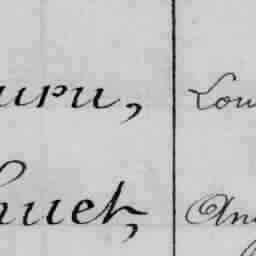 uru, Lou
huet, An